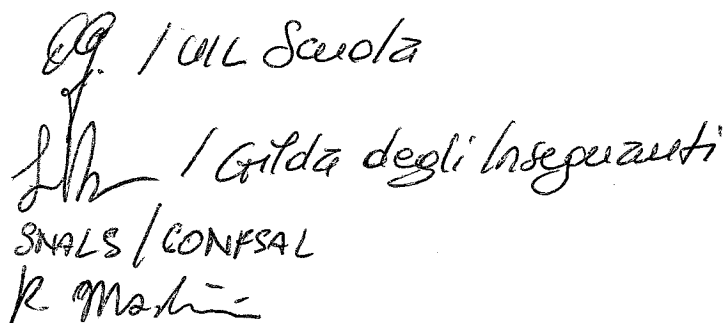 / UIL Scuola
/ Gilda degli Insegnanti
SNALS / CONFSAL
R